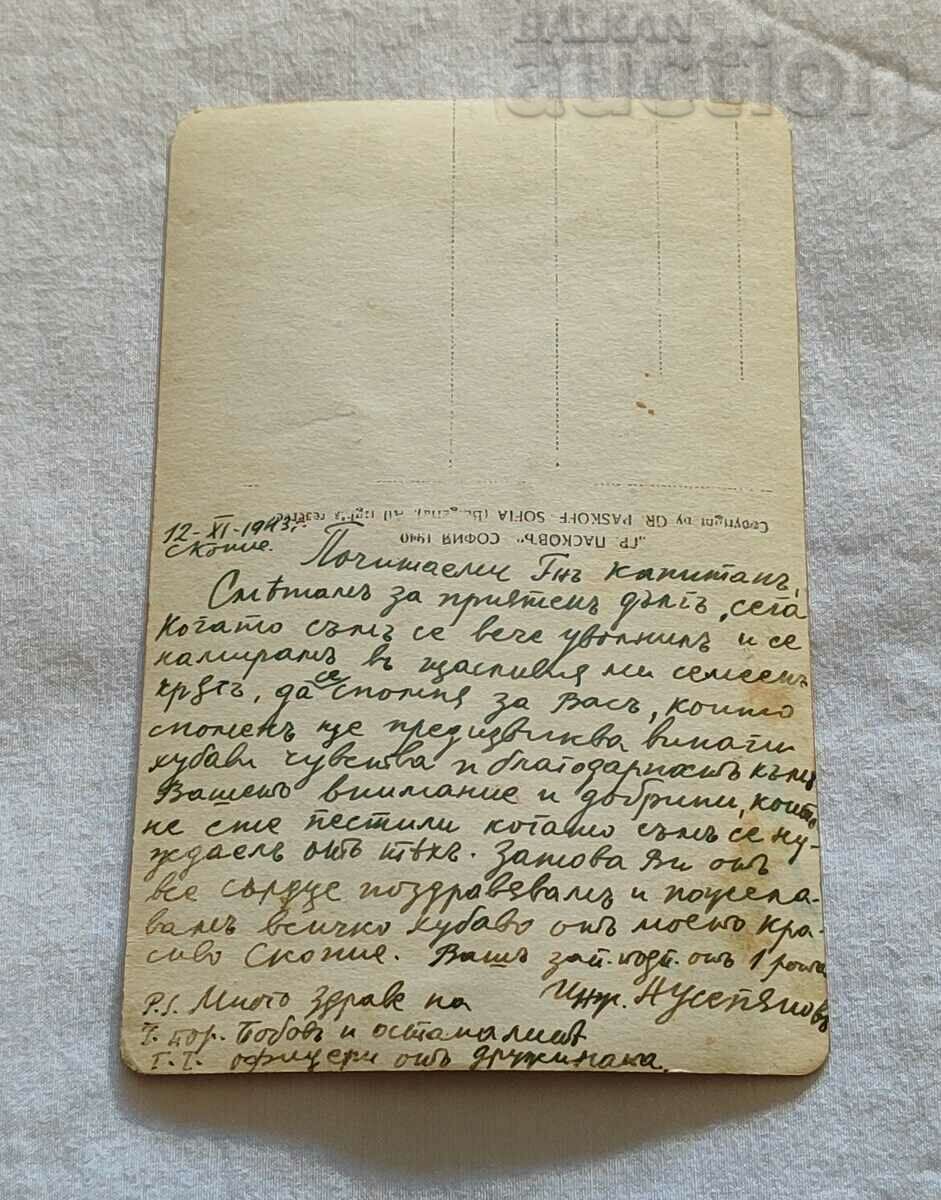 auction
Copyright by GR. PASKOFF SOFIA (Bulgaria). All right's reserved
„ГР. ПАСКОВЪ“ СОФИЯ 1940
12-XI-1943 г.
Скопие.
Почитаеми Гнъ Капитанъ,
Смѣтамъ за приятенъ дългъ, сега
когато съмъ се вече уволнилъ и се
намирамъ въ щастливия ми семеенъ
кръгъ, да се спомня за Васъ, който
споменъ ще предизвиква винаги
хубави чувства и благодарность към
Вашето внимание и добрини, които
не сте пестили когато съмъ се ну-
ждаелъ отъ тѣхъ. Затова Ви отъ
все сърдце поздравявамъ и пожела-
вамъ всичко хубаво отъ моето кра-
сиво Скопие. Вашъ зап. подп. отъ 1 рота
Инж.
P.S. Много здраве на
Г. пор. Бобовъ и останалите
Г.Г. офицери отъ дружината.